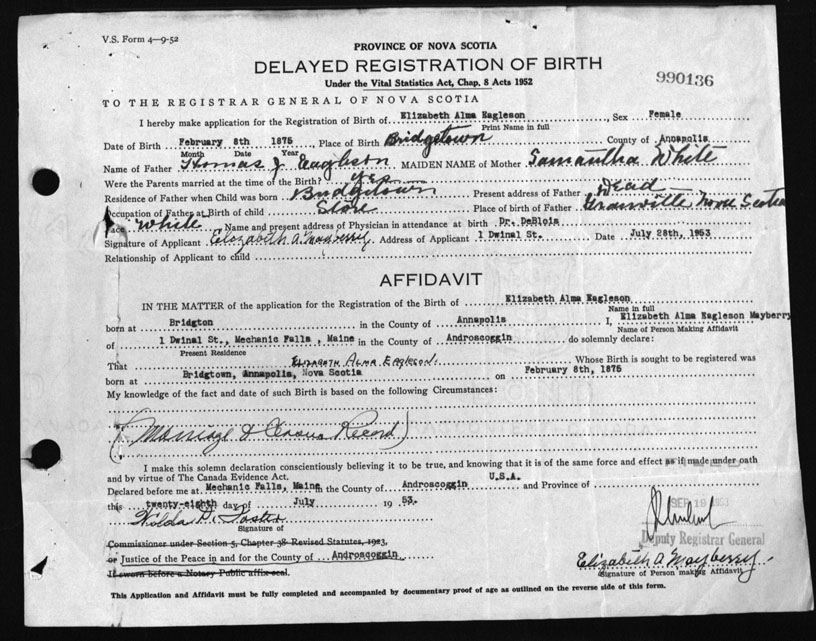 V.S. Form 4—9-52
PROVINCE OF NOVA SCOTIA
DELAYED REGISTRATION OF BIRTH
Under the Vital Statistics Act, Chap. 8 Acts 1952
990136
TO THE REGISTRAR GENERAL OF NOVA SCOTIA
I hereby make application for the Registration of Birth of Elizabeth Alma Eagleson, Sex Female
Print Name in full
Date of Birth February 8th 1875 Place of Birth Bridgetown County of Annapolis
Month Date Year
Name of Father Thomas J Eagleson MAIDEN NAME of Mother Samantha White
Were the Parents married at the time of the Birth? yes
Residence of Father when Child was born Bridgetown Present address of Father Dead
Occupation of Father at Birth of child Store Place of birth of Father Granville Nova Scotia
Race White Name and present address of Physician in attendance at birth Dr. DeBlois
Signature of Applicant Elizabeth A. Mayberry Address of Applicant 1 Dwinal St. Date July 28th, 1953
Relationship of Applicant to child
AFFIDAVIT
IN THE MATTER of the application for the Registration of the Birth of Elizabeth Alma Eagleson
Name in full
born at Bridgton in the County of Annapolis I, Elizabeth Alma Eagleson Mayberry
Name of Person Making Affidavit
of 1 Dwinal St., Mechanic Falls, Maine in the County of Androscoggin do solemnly declare:
Present Residence
That ELIZABETH ALMA EAGLESON. Whose Birth is sought to be registered was
born at Bridgtown, Annapolis, Nova Scotia on February 8th, 1875
My knowledge of the fact and date of such Birth is based on the following Circumstances:
(Marriage & Census Record)
I make this solemn declaration conscientiously believing it to be true, and knowing that it is of the same force and effect as if made under oath
and by virtue of The Canada Evidence Act.
Declared before me at Mechanic Falls, Maine in the County of Androscoggin U.S.A. and Province of
this twenty-eighth day of July 1953.
SEP 18
Hilda D. Foster
Signature of
Deputy Registrar General
Commissioner under Section 5, Chapter 38 Revised Statutes, 1923,
or Justice of the Peace in and for the County of Androscoggin
Elizabeth A Mayberry
Signature of Person making Affidavit
If sworn before a Notary Public affix seal.
This Application and Affidavit must be fully completed and accompanied by documentary proof of age as outlined on the reverse side of this form.